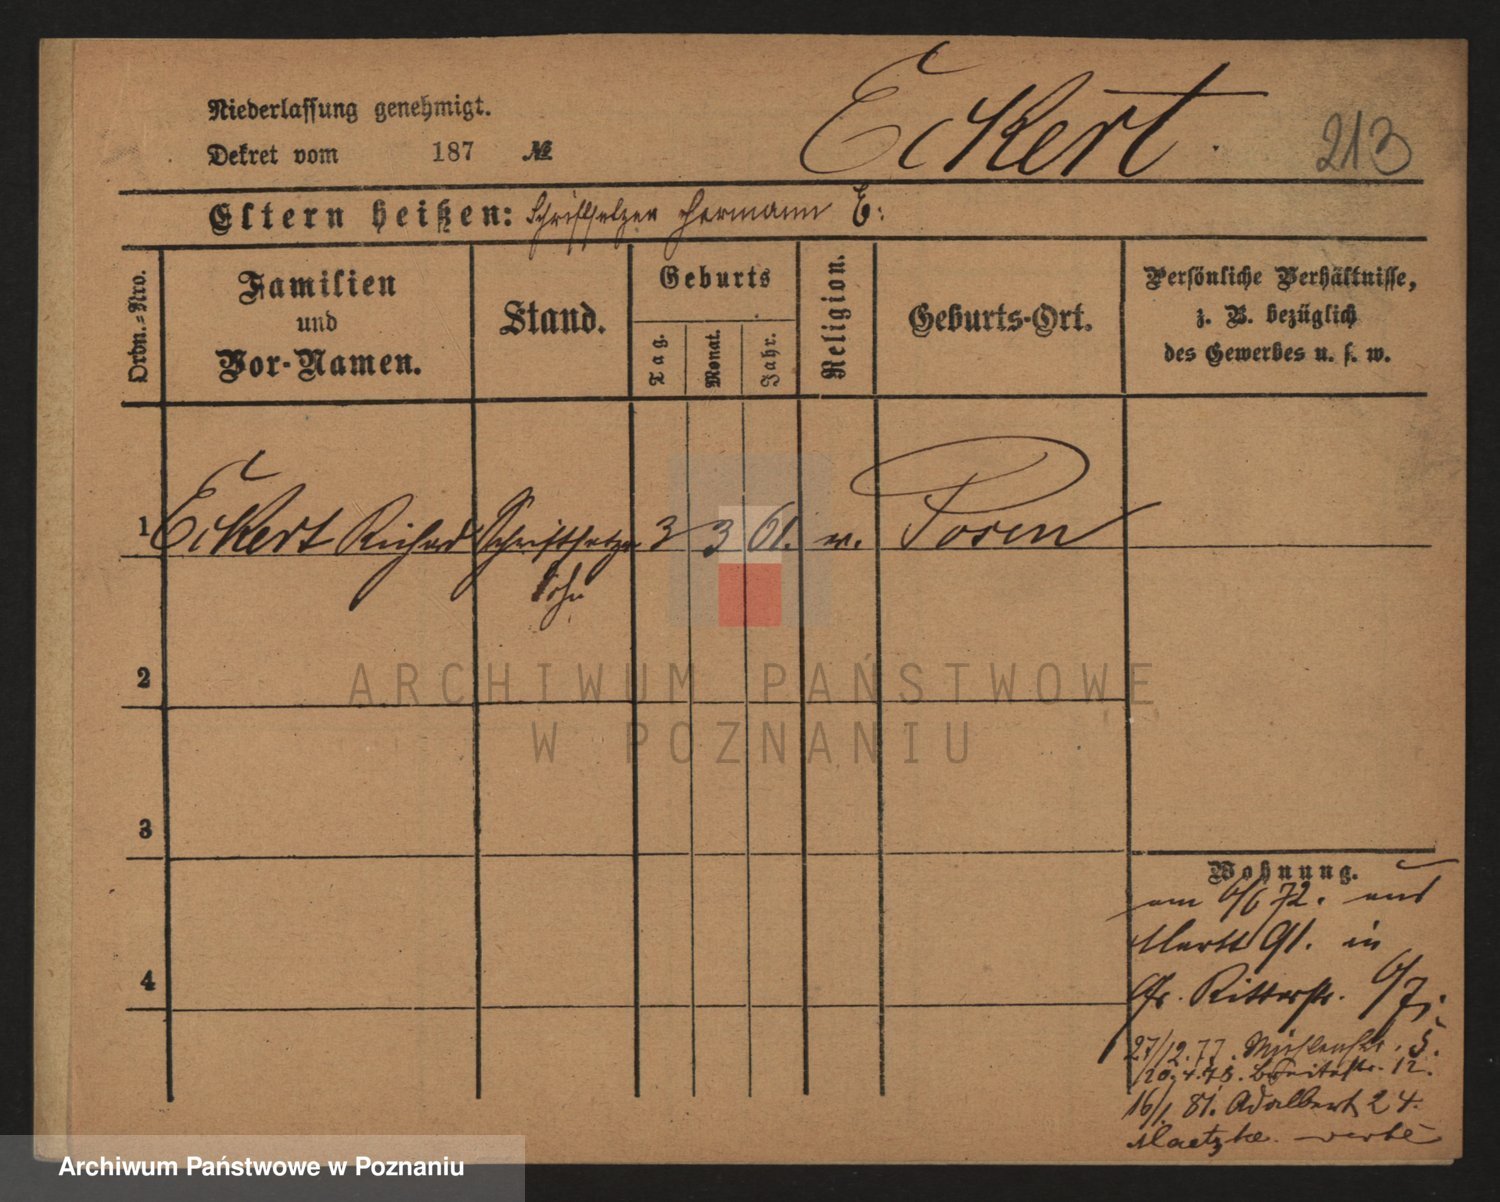 Niederlassung genehmigt.
Eckert.
213
Dekret vom 187 №
Eltern heißen: Schriftsetzer Hermann E:
Ordn.-Nro.
Familien
und
Vor-Namen.
Stand.
Geburts
Tag.
Monat.
Jahr.
Religion.
Geburts-Ort.
Persönliche Verhältnisse,
z. B. bezüglich
des Gewerbes u. s. w.
1 Eckert Richard Schriftsetzer 3 3 61. ev. Posen
Sohn
2
3
4
Wohnung.
am 6/6 72. aus
Markt 91. in
Gr. Ritterstr. 6/7;
27/12.77. Mühlenstr. 5.
/20.4.78. Breitestr. 12.
16/1. 81. Adalbert 24.
Maetzke.
ARCHIWUM PAŃSTWOWE
W POZNANIU
Archiwum Państwowe w Poznaniu